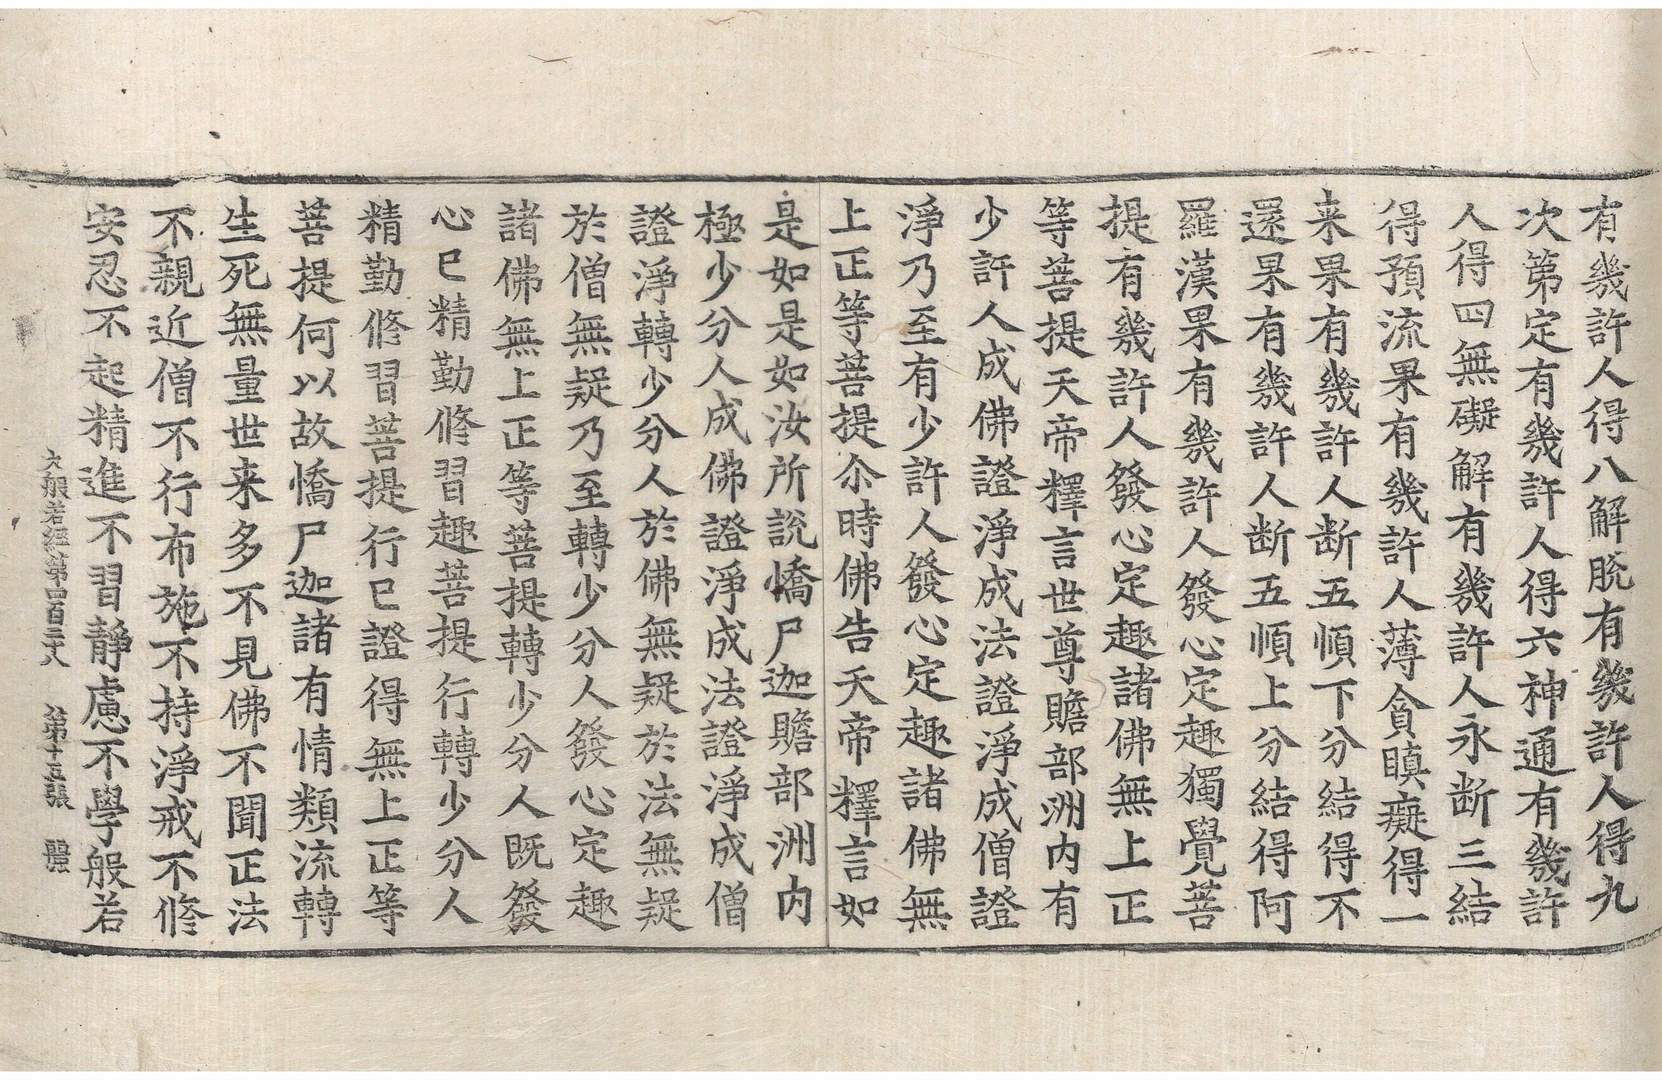 有幾許人得八解脫有幾許人得九
次第定有幾許人得六神通有幾許
人得四無礙解有幾許人永断三結
得預流果有幾許人薄貪瞋癡得一
来果有幾許人断五順下分結得不
還果有幾許人断五順上分結得阿
羅漢果有幾許人發心定趣獨覺菩
提有幾許人發心定趣諸佛無上正
等菩提天帝釋言世尊贍部洲内有
少許人成佛證淨成法證淨成僧證
淨乃至有少許人發心定趣諸佛無
上正等菩提尒時佛告天帝釋言如
是如是如汝所說憍尸迦贍部洲内
極少分人成佛證淨成法證淨成僧
證淨轉少分人於佛無疑於法無疑
於僧無疑乃至轉少分人發心定趣
諸佛無上正等菩提轉少分人既發
心已精勤修習趣菩提行轉少分人
精勤修習菩提行已證得無上正等
菩提何以故憍尸迦諸有情類流轉
生死無量世来多不見佛不聞正法
不親近僧不行布施不持淨戒不修
安忍不起精進不習靜慮不學般若
大般若經第四百二十八 第十五張